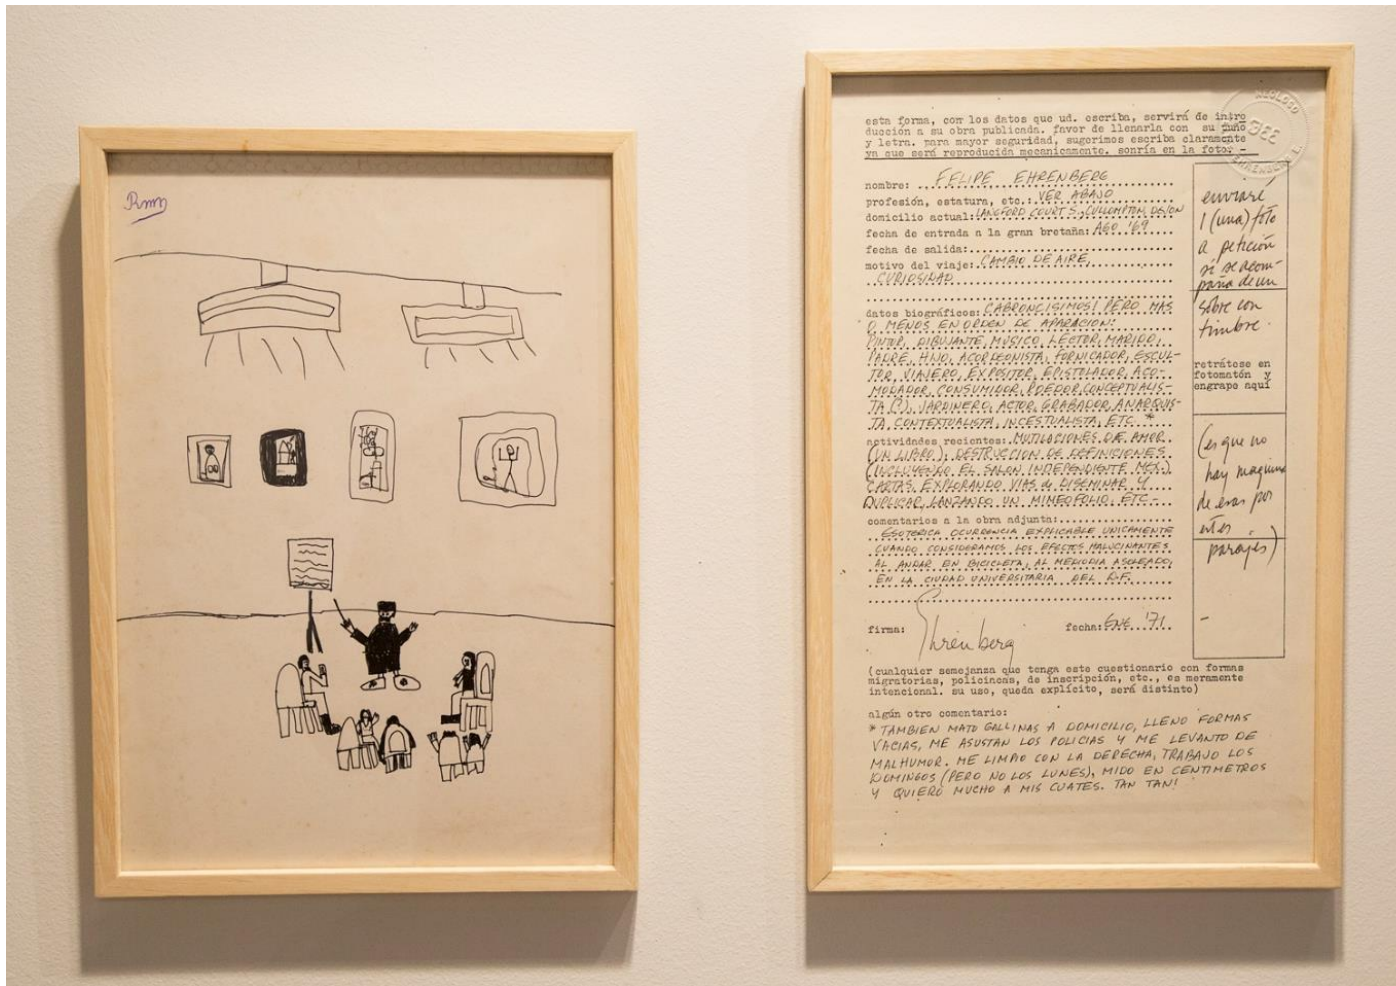 Rmm
NEOLOGO
FEE
EHRENBERG F.
esta forma, con los datos que ud. escriba, servirá de intro
ducción a su obra publicada. favor de llenarla con su puño
y letra. para mayor seguridad, sugerimos escriba claramente
ya que será reproducida mecanicamente. sonría en la foto: -
nombre: FELIPE EHRENBERG
profesión, estatura, etc.: VER ABAJO
domicilio actual: LANGFORD COURT S., CULLOMPTON, DEVON
fecha de entrada a la gran bretaña: AGO '69
fecha de salida:
motivo del viaje: CAMBIO DE AIRE,
CURIOSIDAD
datos biográficos: CABRONCISIMOS! PERO MAS
O MENOS EN ORDEN DE APARACION:
PINTOR, DIBUJANTE, MUSICO, LECTOR, MARIDO,
PADRE, HNO, ACORDEONISTA, FORNICADOR, ESCUL-
TOR, VIAJERO, EXPOSITOR, EPISTOLADOR, ACO-
MODADOR, CONSUMIDOR, ROEDOR, CONCEPTUALIS-
TA (?), JARDINERO, ACTOR, GRABADOR, ANARQUIS-
TA, CONTEXTUALISTA, INCESTUALISTA, ETC. *
actividades recientes: MUTILACIONES DE AMOR
(UN LIBRO); DESTRUCCION DE DEFINICIONES
(INCLUYENDO EL SALON INDEPENDIENTE MEX.)
CARTAS, EXPLORANDO VIAS de DISEMINAR Y
DUPLICAR, LANZANDO UN MIMEOFOLIO, ETC -
comentarios a la obra adjunta:
ESOTERICA OCURRENCIA EXPLICABLE UNICAMENTE
CUANDO CONSIDERAMOS LOS EFECTOS HALUCINANTES
AL ANDAR EN BICICLETA, AL MEDIODIA ASOLEADO,
EN LA CIUDAD UNIVERSITARIA DEL D.F.
firma: Ehrenberg fecha: ENE '71
enviaré
1 (una) foto
a petición
si se acom-
paña de un
sobre con
timbre.
retrátese en
fotomatón y
engrape aquí
(es que no
hay maquina
de esas por
estos
parajes)
-
(cualquier semejanza que tenga este cuestionario con formas
migratorias, policiacas, de inscripción, etc., es meramente
intencional. su uso, queda explícito, será distinto)
algún otro comentario:
* TAMBIEN MATO GALLINAS A DOMICILIO, LLENO FORMAS
VACIAS, ME ASUSTAN LOS POLICIAS Y ME LEVANTO DE
MALHUMOR. ME LIMPIO CON LA DERECHA, TRABAJO LOS
DOMINGOS (PERO NO LOS LUNES), MIDO EN CENTIMETROS
Y QUIERO MUCHO A MIS CUATES. TAN TAN!